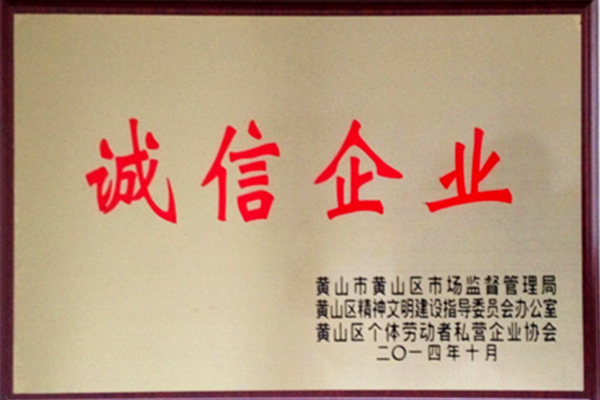 诚信企业
黄山市黄山区市场监督管理局
黄山区精神文明建设指导委员会办公室
黄山区个体劳动者私营企业协会
二〇一四年十月